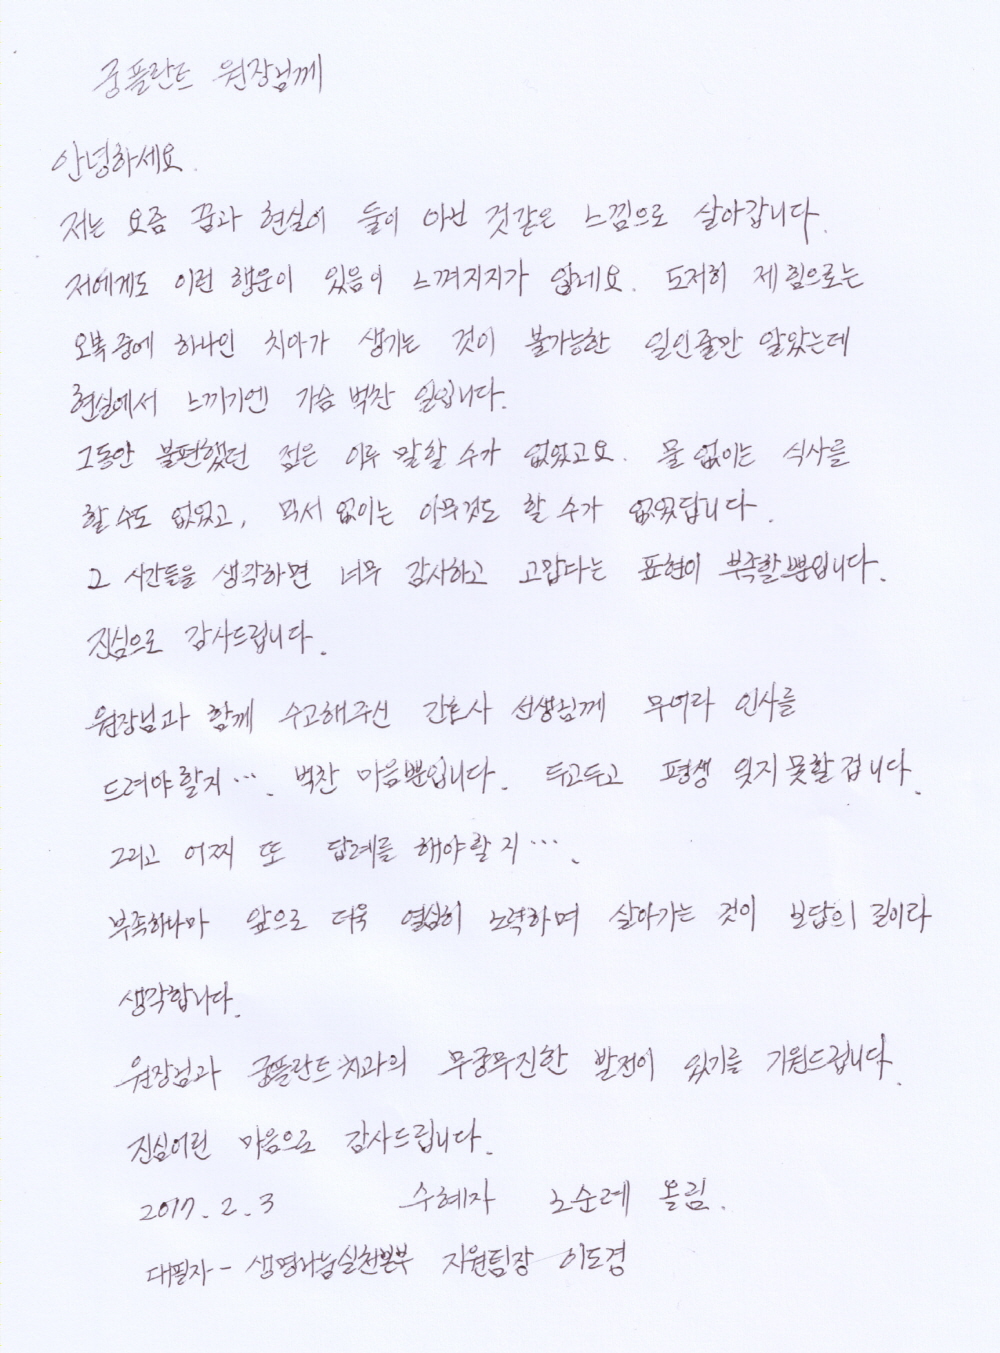 궁플란트 원장님께
안녕하세요.
저는 요즘 꿈과 현실이 둘이 아닌 것같은 느낌으로 살아갑니다.
저에게도 이런 행운이 있음이 느껴지지가 않네요. 도저히 제 힘으로는
오복 중에 하나인 치아가 생기는 것이 불가능한 일인줄만 알았는데
현실에서 느끼기엔 가슴 벅찬 일입니다.
그동안 불편했던 점은 이루 말할 수가 없었고요. 물 없이는 식사를
할 수도 없었고, 믹서 없이는 아무것도 할 수가 없었답니다.
그 시간들을 생각하면 너무 감사하고 고맙다는 표현이 부족할뿐입니다.
진심으로 감사드립니다.
원장님과 함께 수고해주신 간호사 선생님께 무어라 인사를
드려야할지…. 벅찬 마음뿐입니다. 두고두고 평생 잊지못할겁니다.
그리고 어찌 또 답례를 해야할지….
부족하나마 앞으로 더욱 열심히 노력하며 살아가는 것이 보답의 길이라
생각합니다.
원장님과 궁플란트치과의 무궁무진한 발전이 있기를 기원드립니다.
진심어린 마음으로 감사드립니다.
2017. 2. 3 수혜자 노순례 올림.
대필자 - 생명나눔실천본부 지원팀장 이도경